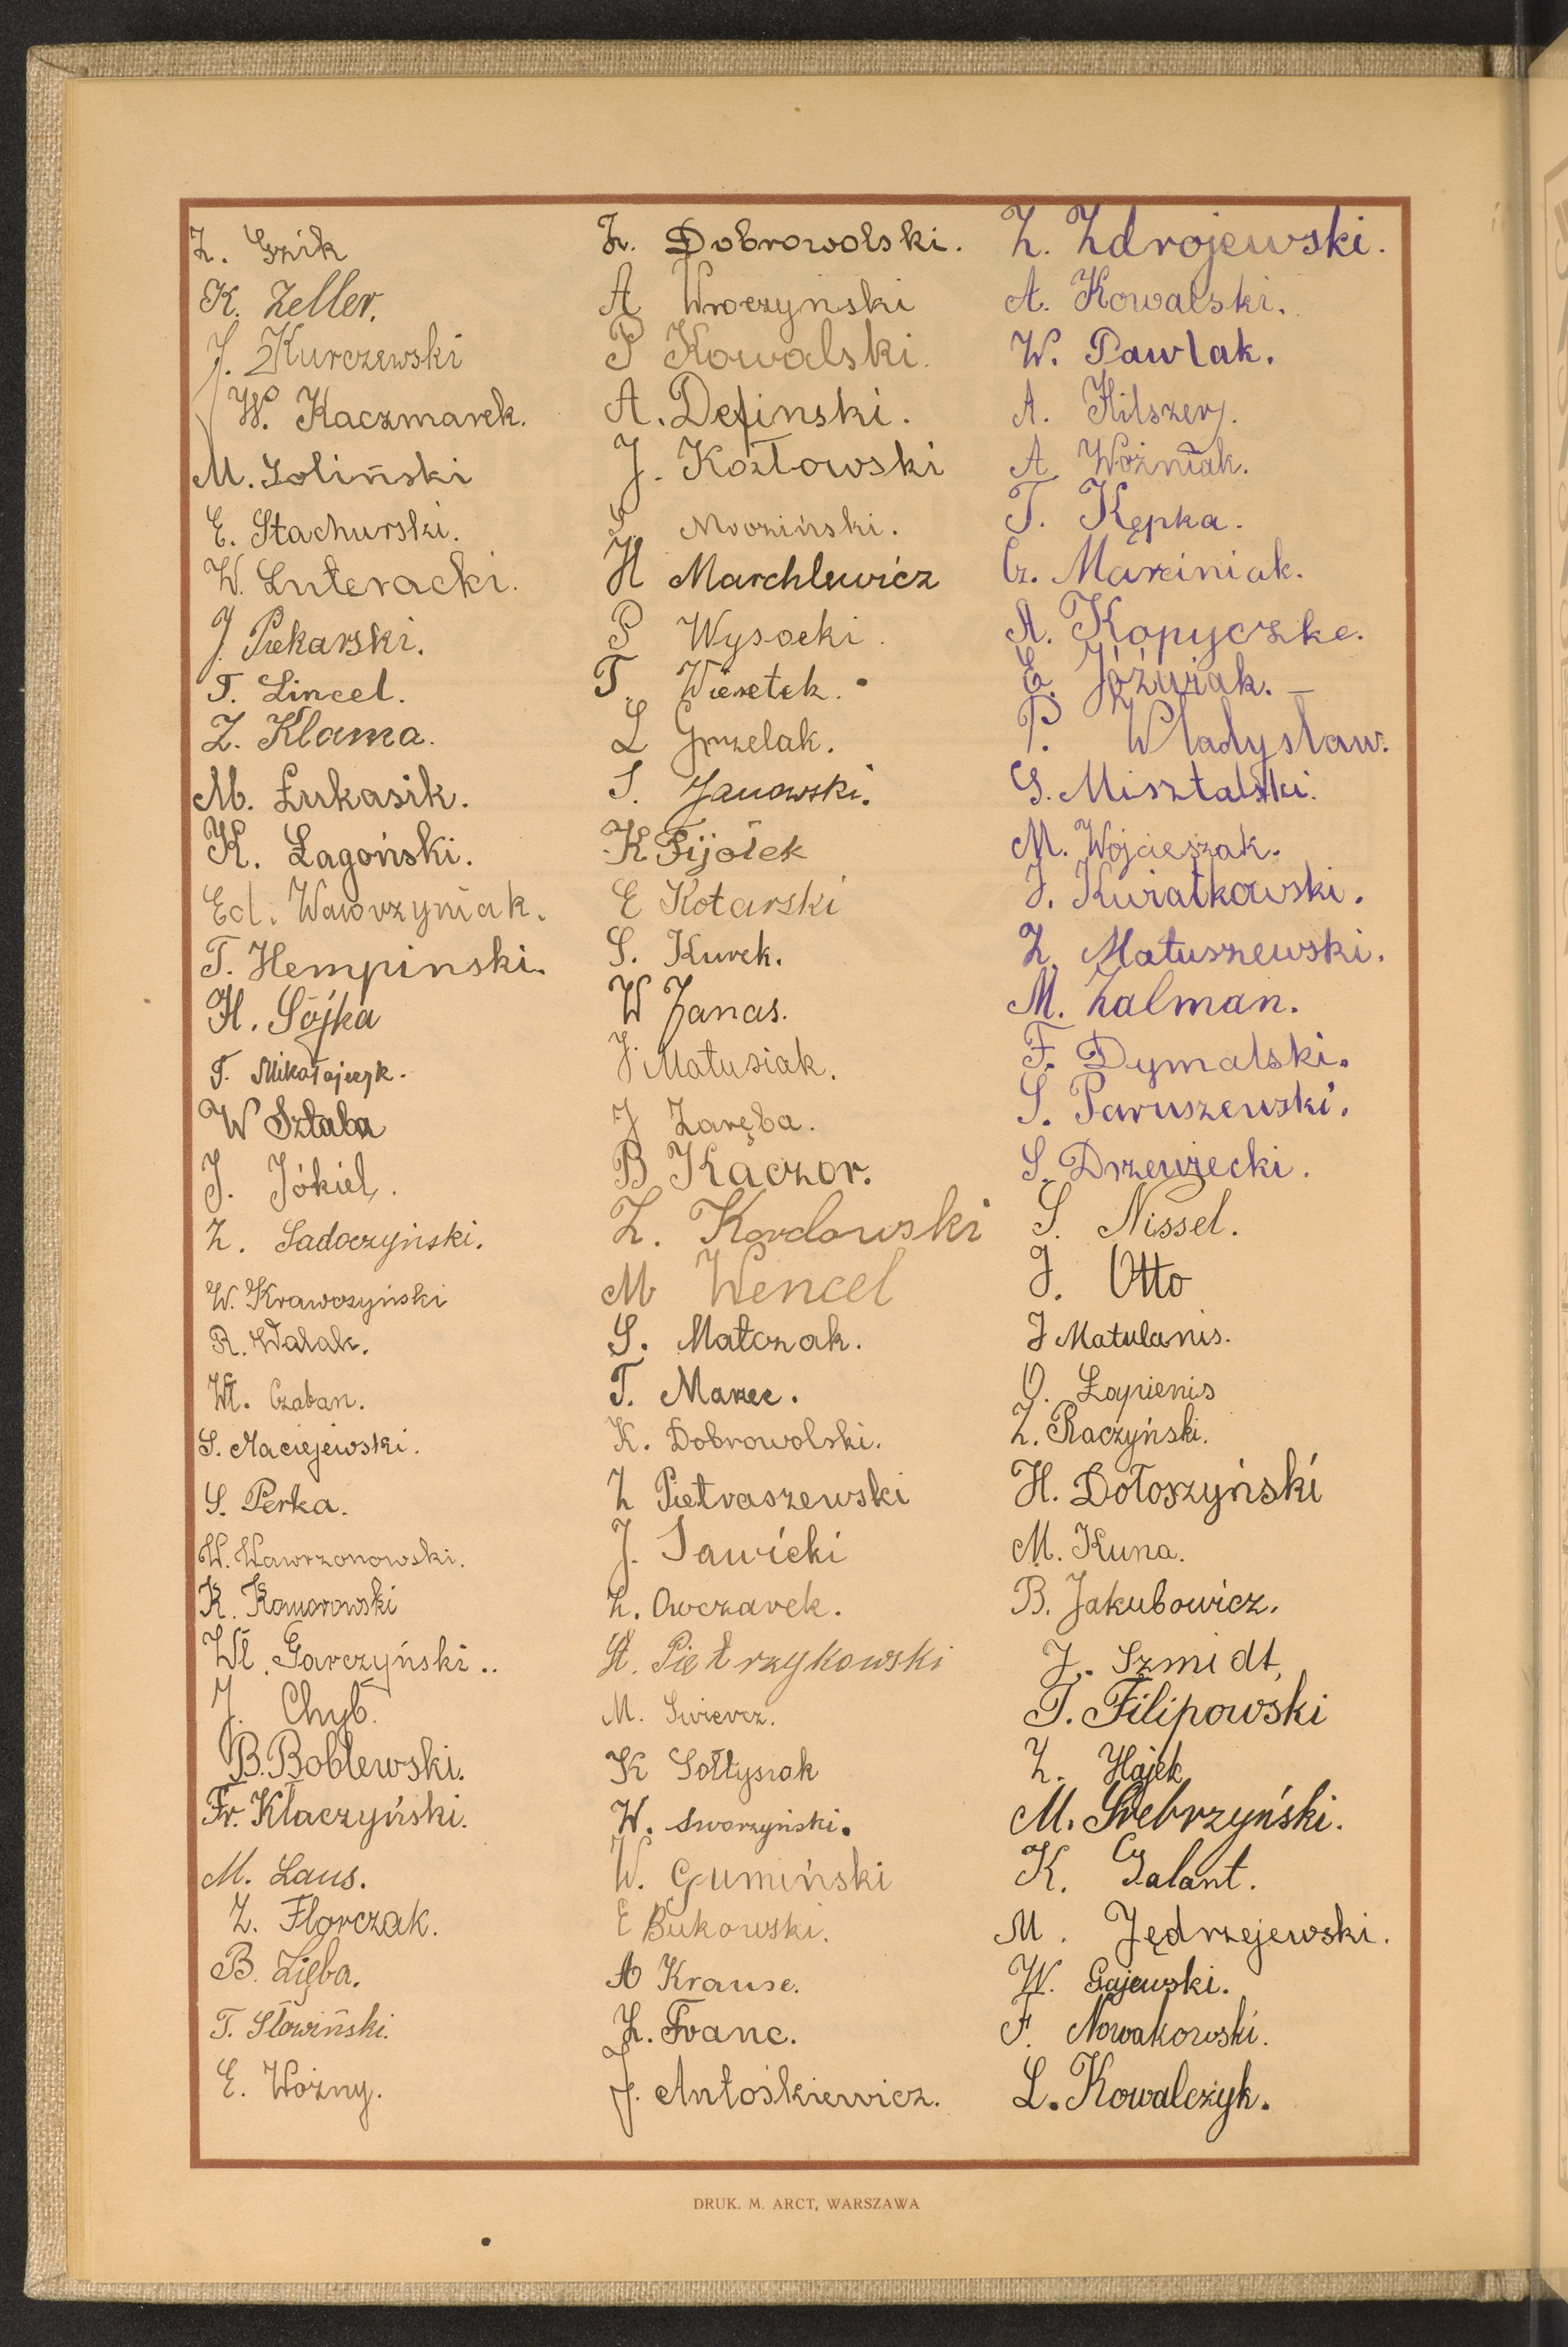 Z. Gzik
K. Zeller.
J. Kurczewski
W. Kaczmarek.
M. Soliński
E. Stachurski.
W. Luteracki.
J. Piekarski.
T. Lincel.
Z. Klama.
M. Łukasik.
K. Łagoński.
Ed. Wawrzyniak.
T. Hempinski.
H. Sójka
T. Mikołajczyk.
W Sztaba
J. Jókiel.
Z. Sadoczyński.
W. Krawczyński
R. Walak.
Wł. Czaban.
S. Maciejewski.
S. Perka.
W. Wawrzonowski.
K. Komorowski
Wł. Garczyński..
J. Chyb.
B. Boblewski.
Fr. Kłaczyński.
M. Laus.
Z. Florczak.
B. Zięba.
T. Słowiński.
E. Woźny.
Z. Dobrowolski.
A Wroczyński
P Kowalski.
A. Definski.
J. Kozłowski
Mroziński.
H Marchlewicz
P Wysocki.
T. Wiesetek.
L Grzelak.
S. Janowski.
K Fijołek
E Kotarski
S. Kurek.
W Janas.
J. Matusiak.
J Zaręba.
B Kaczor.
Z. Kordowski
M Wencel
S. Matczak.
T. Marzec.
K. Dobrowolski.
Z Pietraszewski
J. Sawicki
Z. Owczarek.
St. Pietrzykowski
M. Świercz.
K Sołtysiak
W. Sworzyński.
W. Gumiński
E Bukowski.
A Krause.
Z. Franc.
J. Antośkiewicz.
Z. Zdrojewski.
A. Kowalski.
W. Pawlak.
A. Hilszer.
A Woźniak.
T. Kępka.
Cz. Marciniak.
A. Kopyczke.
E. Jóźwiak.
P. Władysław.
G. Misztalski.
M. Wojcieszak.
J. Kwiatkowski.
Z. Matuszewski.
M. Zalman.
F. Dymalski.
S. Paruszewski.
S. Drzewiecki.
S. Nissel.
J. Otto
J Matulanis.
O. Łapienis
Z. Raczyński.
H. Dołoszyński
M. Kuna.
B. Jakubowicz.
J. Szmidt
T. Filipowski
Z. Hajek
M. Srebrzyński.
K. Galant.
M. Jędrzejewski.
W. Gajewski.
F. Nowakowski.
L. Kowalczyk.
DRUK. M. ARCT, WARSZAWA